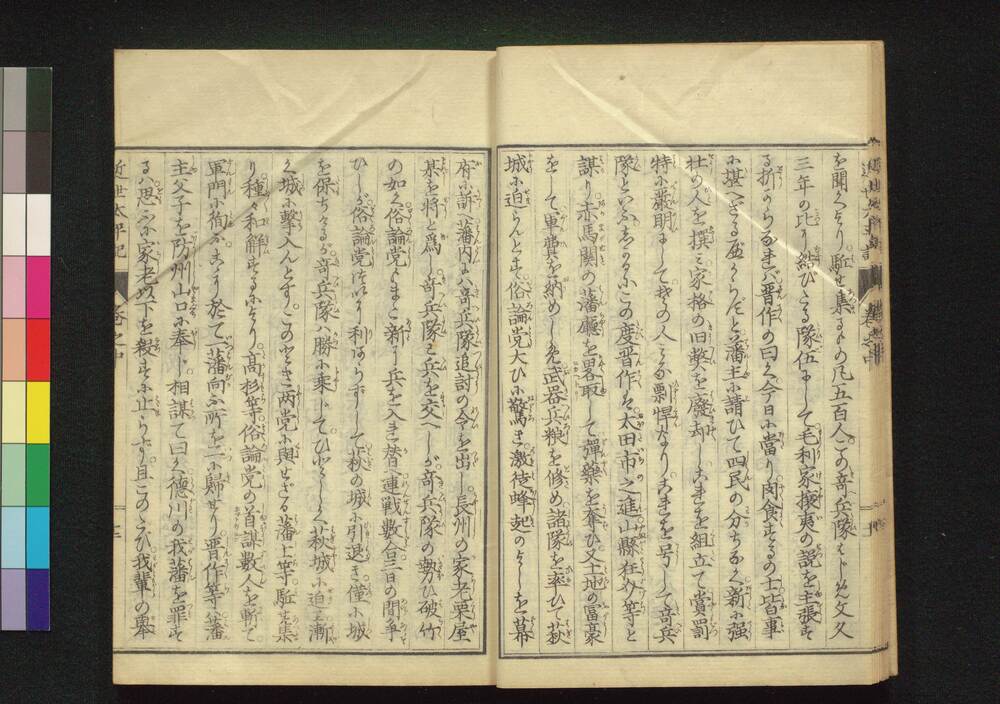 を聞くより駈せ集るもの凡五百人この奇兵隊はじめ文久
三年の比より結びたる隊伍にして毛利家攘夷の説を主張する
折からなれば晋作の曰く今日に當り肉食するの士皆事
に堪へざる故からだと藩主に請ひて四民の分ちなく新に强
壮の人を撰み家格の旧弊を廃却しこれを組立て賞罰
特に厳明にしてその人みな剽悍なりこれを号して奇兵
隊といふしかるにこの度晋作は太田市之進山縣狂介等と
謀り赤馬関の藩廳を畧取して彈藥を奪ひ又土地の富豪
をして軍費を納めしめ武器兵粮を修め諸隊を率ひて萩
城に迫らんとす俗論党大ひに驚き激徒蜂起のよしを幕
府に訴へ藩内には奇兵隊追討の令を出し長州の家老栗屋
某を将と為し奇兵隊と兵を交へしが奇兵隊の勢ひ破竹
の如く俗論党もまた新に兵を入れ替へ連戦数合三日の間争
ひしが俗論党はつひに利あらずして萩の城に引退き僅に城
を保ちけるが奇兵隊は勝に乗じてひとしく萩城に迫る漸
く城に擊入んとすこのとき两党に與せざる藩士等駈せ集
り種々和解するにより高杉等俗論党の首謀数人を斬て
軍門に徇ふこゝに於て藩向ふ所を二に歸せり晋作等は藩
主父子を防州山口に奉じ相謀て曰く徳川の我藩を罪する
は思ふに家老以下を殺すに止らず且このたび我輩の擧
近世太平記
巻之中